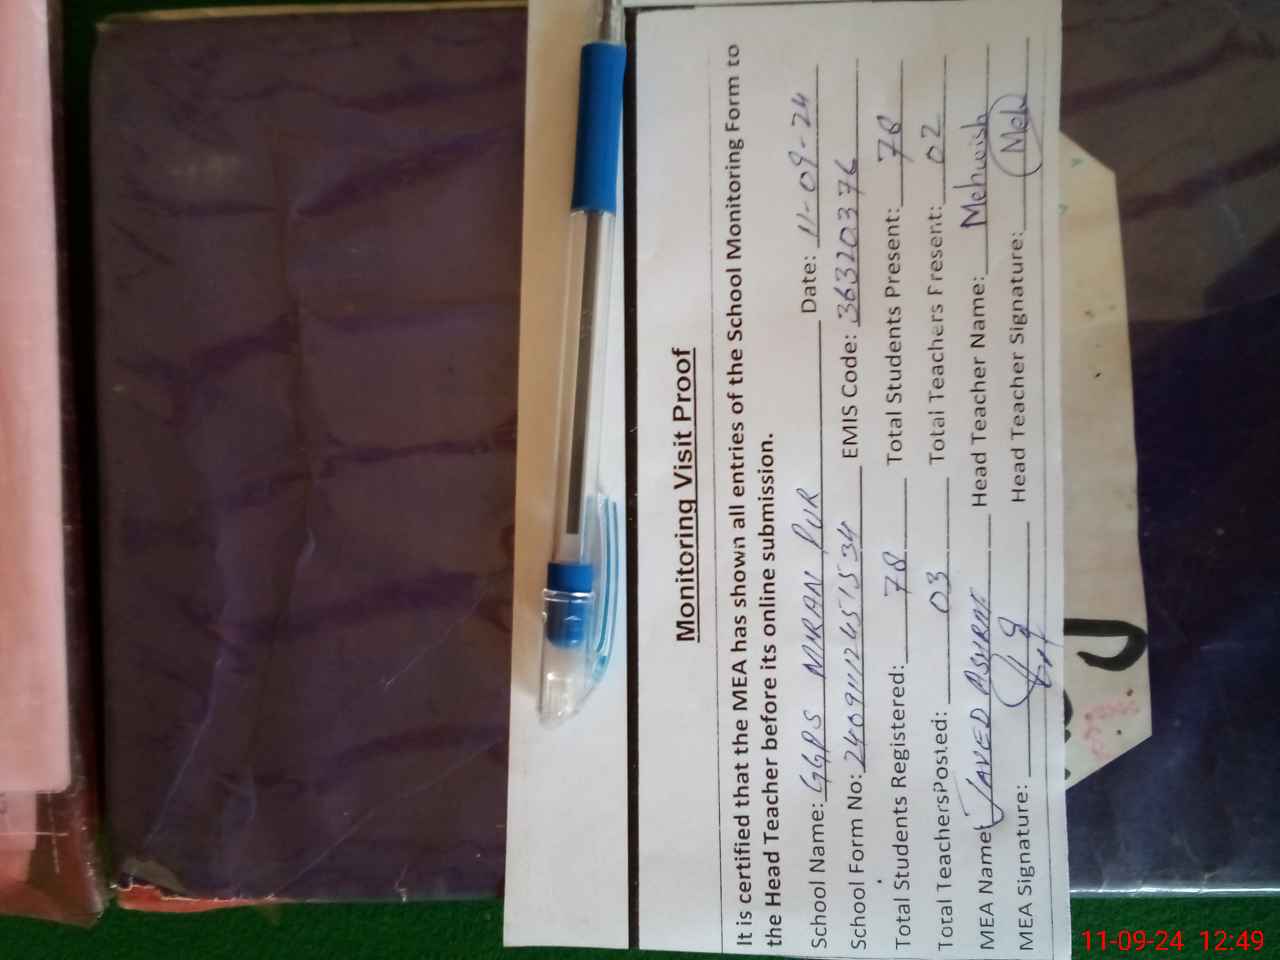 Monitoring Visit Proof
It is certified that the MEA has shown all entries of the School Monitoring Form to
the Head Teacher before its online submission.
School Name: GGPS MIRAN PUR Date: 11-09-24
School Form No: EMIS Code: 36320376
Total Students Registered: 78 Total Students Present: 78
Total TeachersPosted: 03 Total Teachers Present: 02
MEA Name: JAVED ASHRAF Head Teacher Name: Mehwish
MEA Signature: Head Teacher Signature: Meh
11-09-24 12:49